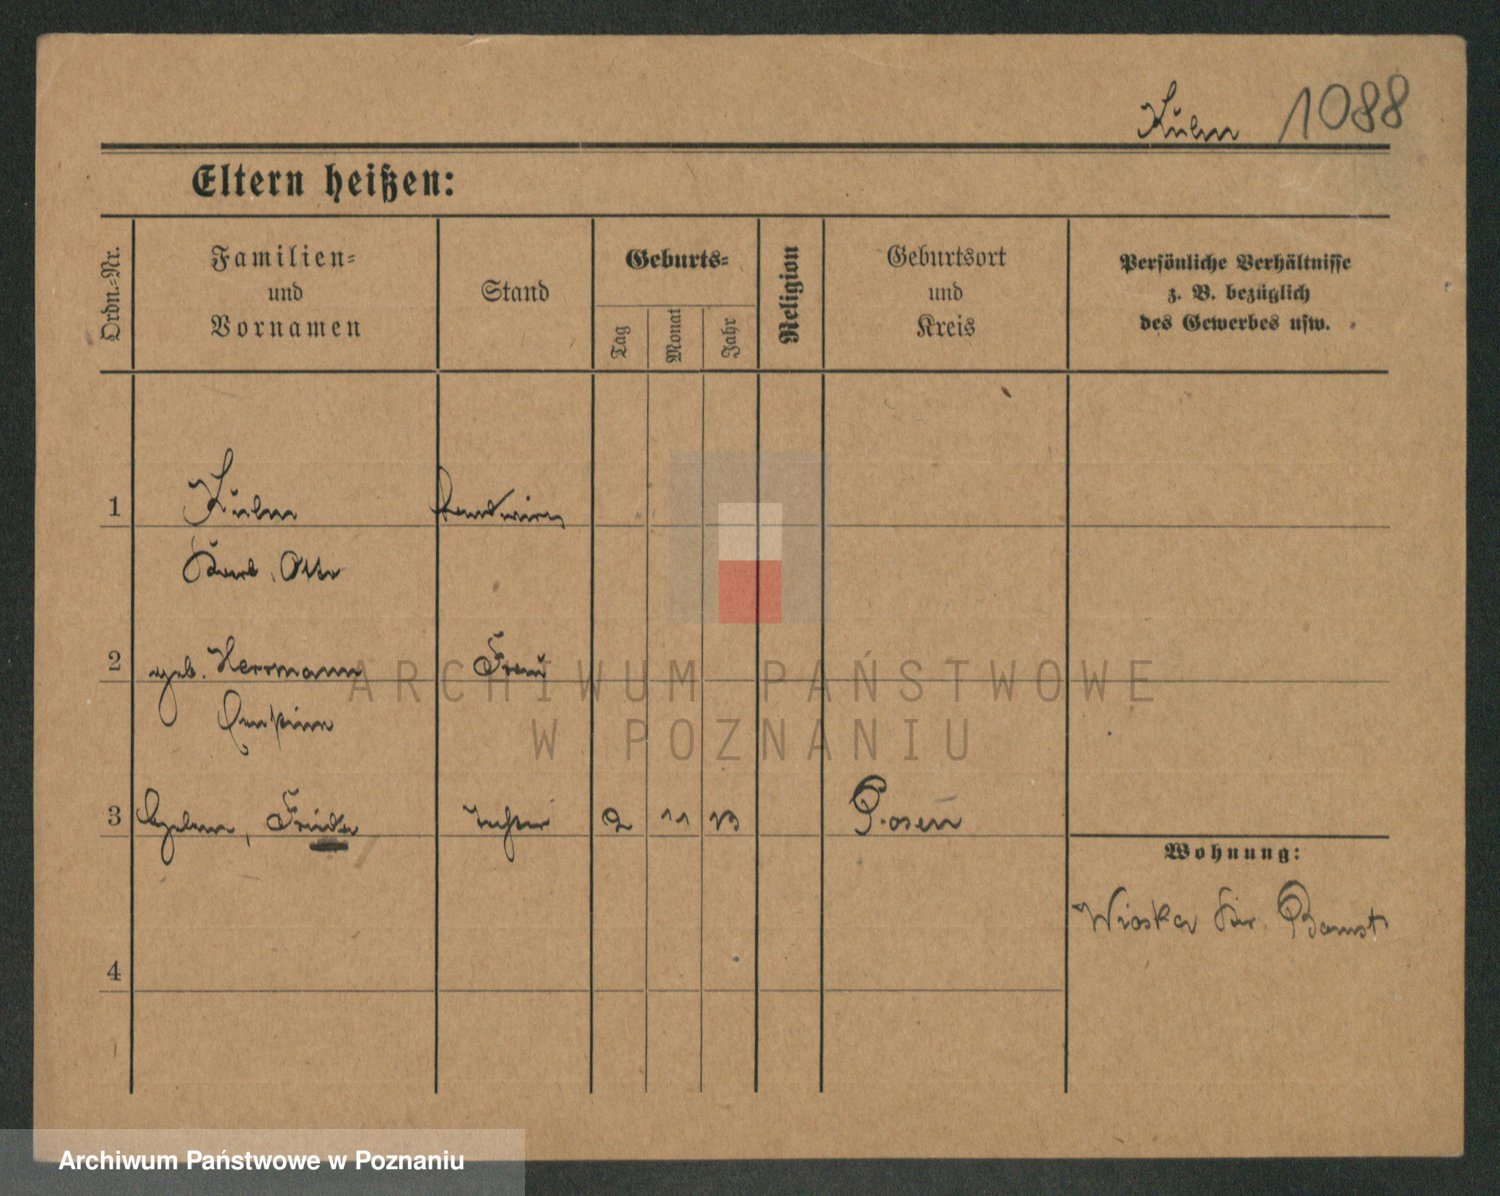 Kulm 1088
Eltern heißen:
Ordn.-Nr.
Familien-
und
Vornamen
Stand
Geburts-
Tag
Monat
Jahr
Religion
Geburtsort
und
Kreis
Persönliche Verhältnisse
z. B. bezüglich
des Gewerbes usw.
1 Kulm Landwirt
Karl, Otto
2 geb. Herrmann Frau
3 Frieda Tochter 2 11 13 Posen
Wohnung:
Wioska Kr. Bomst
4
ARCHIWUM PAŃSTWOWE
W POZNANIU
Archiwum Państwowe w Poznaniu